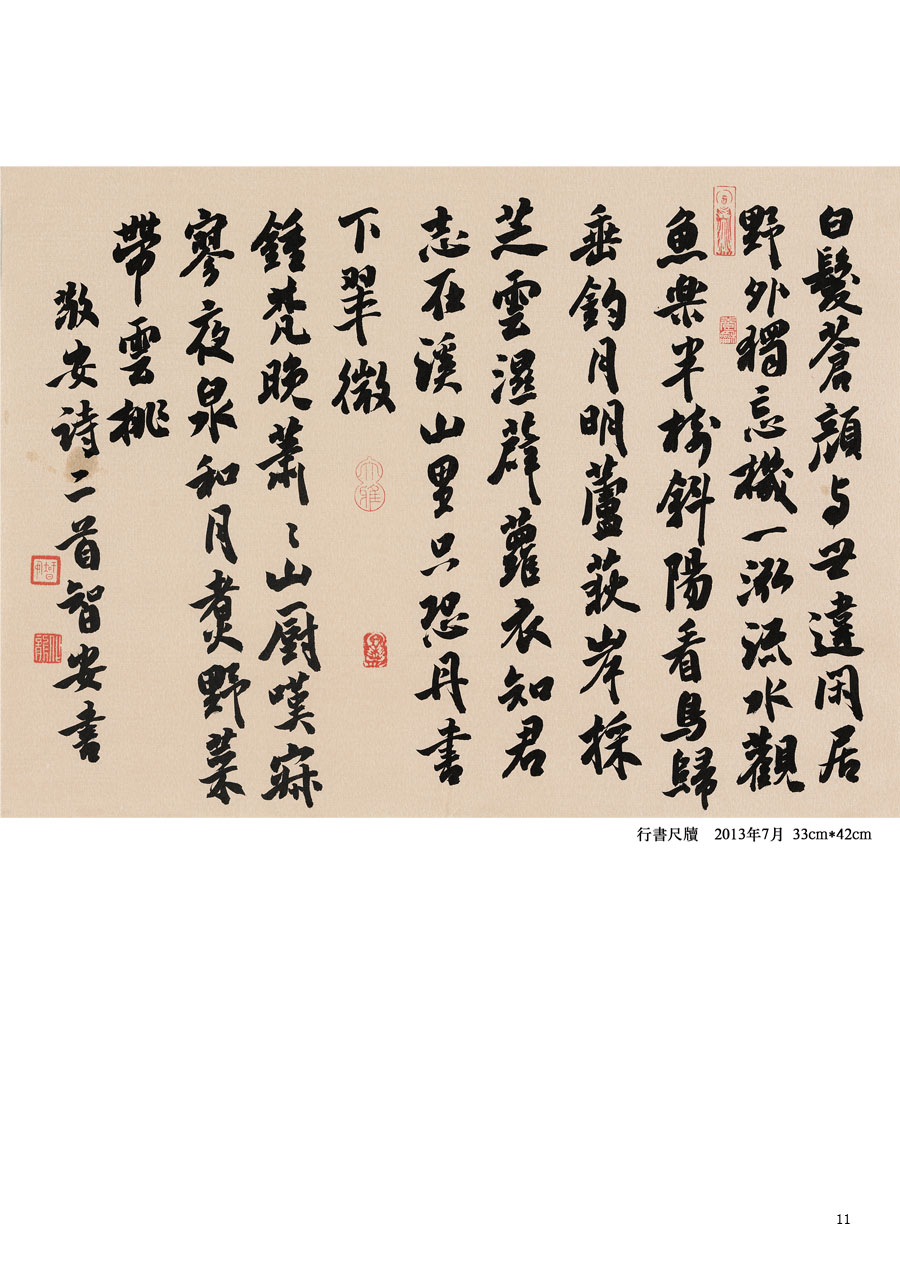 白髮蒼顔与世違閑居
野外獨忘機一泓流水觀
魚樂半樹斜陽看鳥歸
垂釣月明蘆荻岸採
芝雲濕薜蘿衣知君
志在溪山里只恐丹書
下翠微
鍾梵晚蕭〻山厨嘆寂
寥夜泉和月煑野菜
帶雲挑
敬安诗二首智安书
行書尺牘 2013年7月 33cm*42cm
11